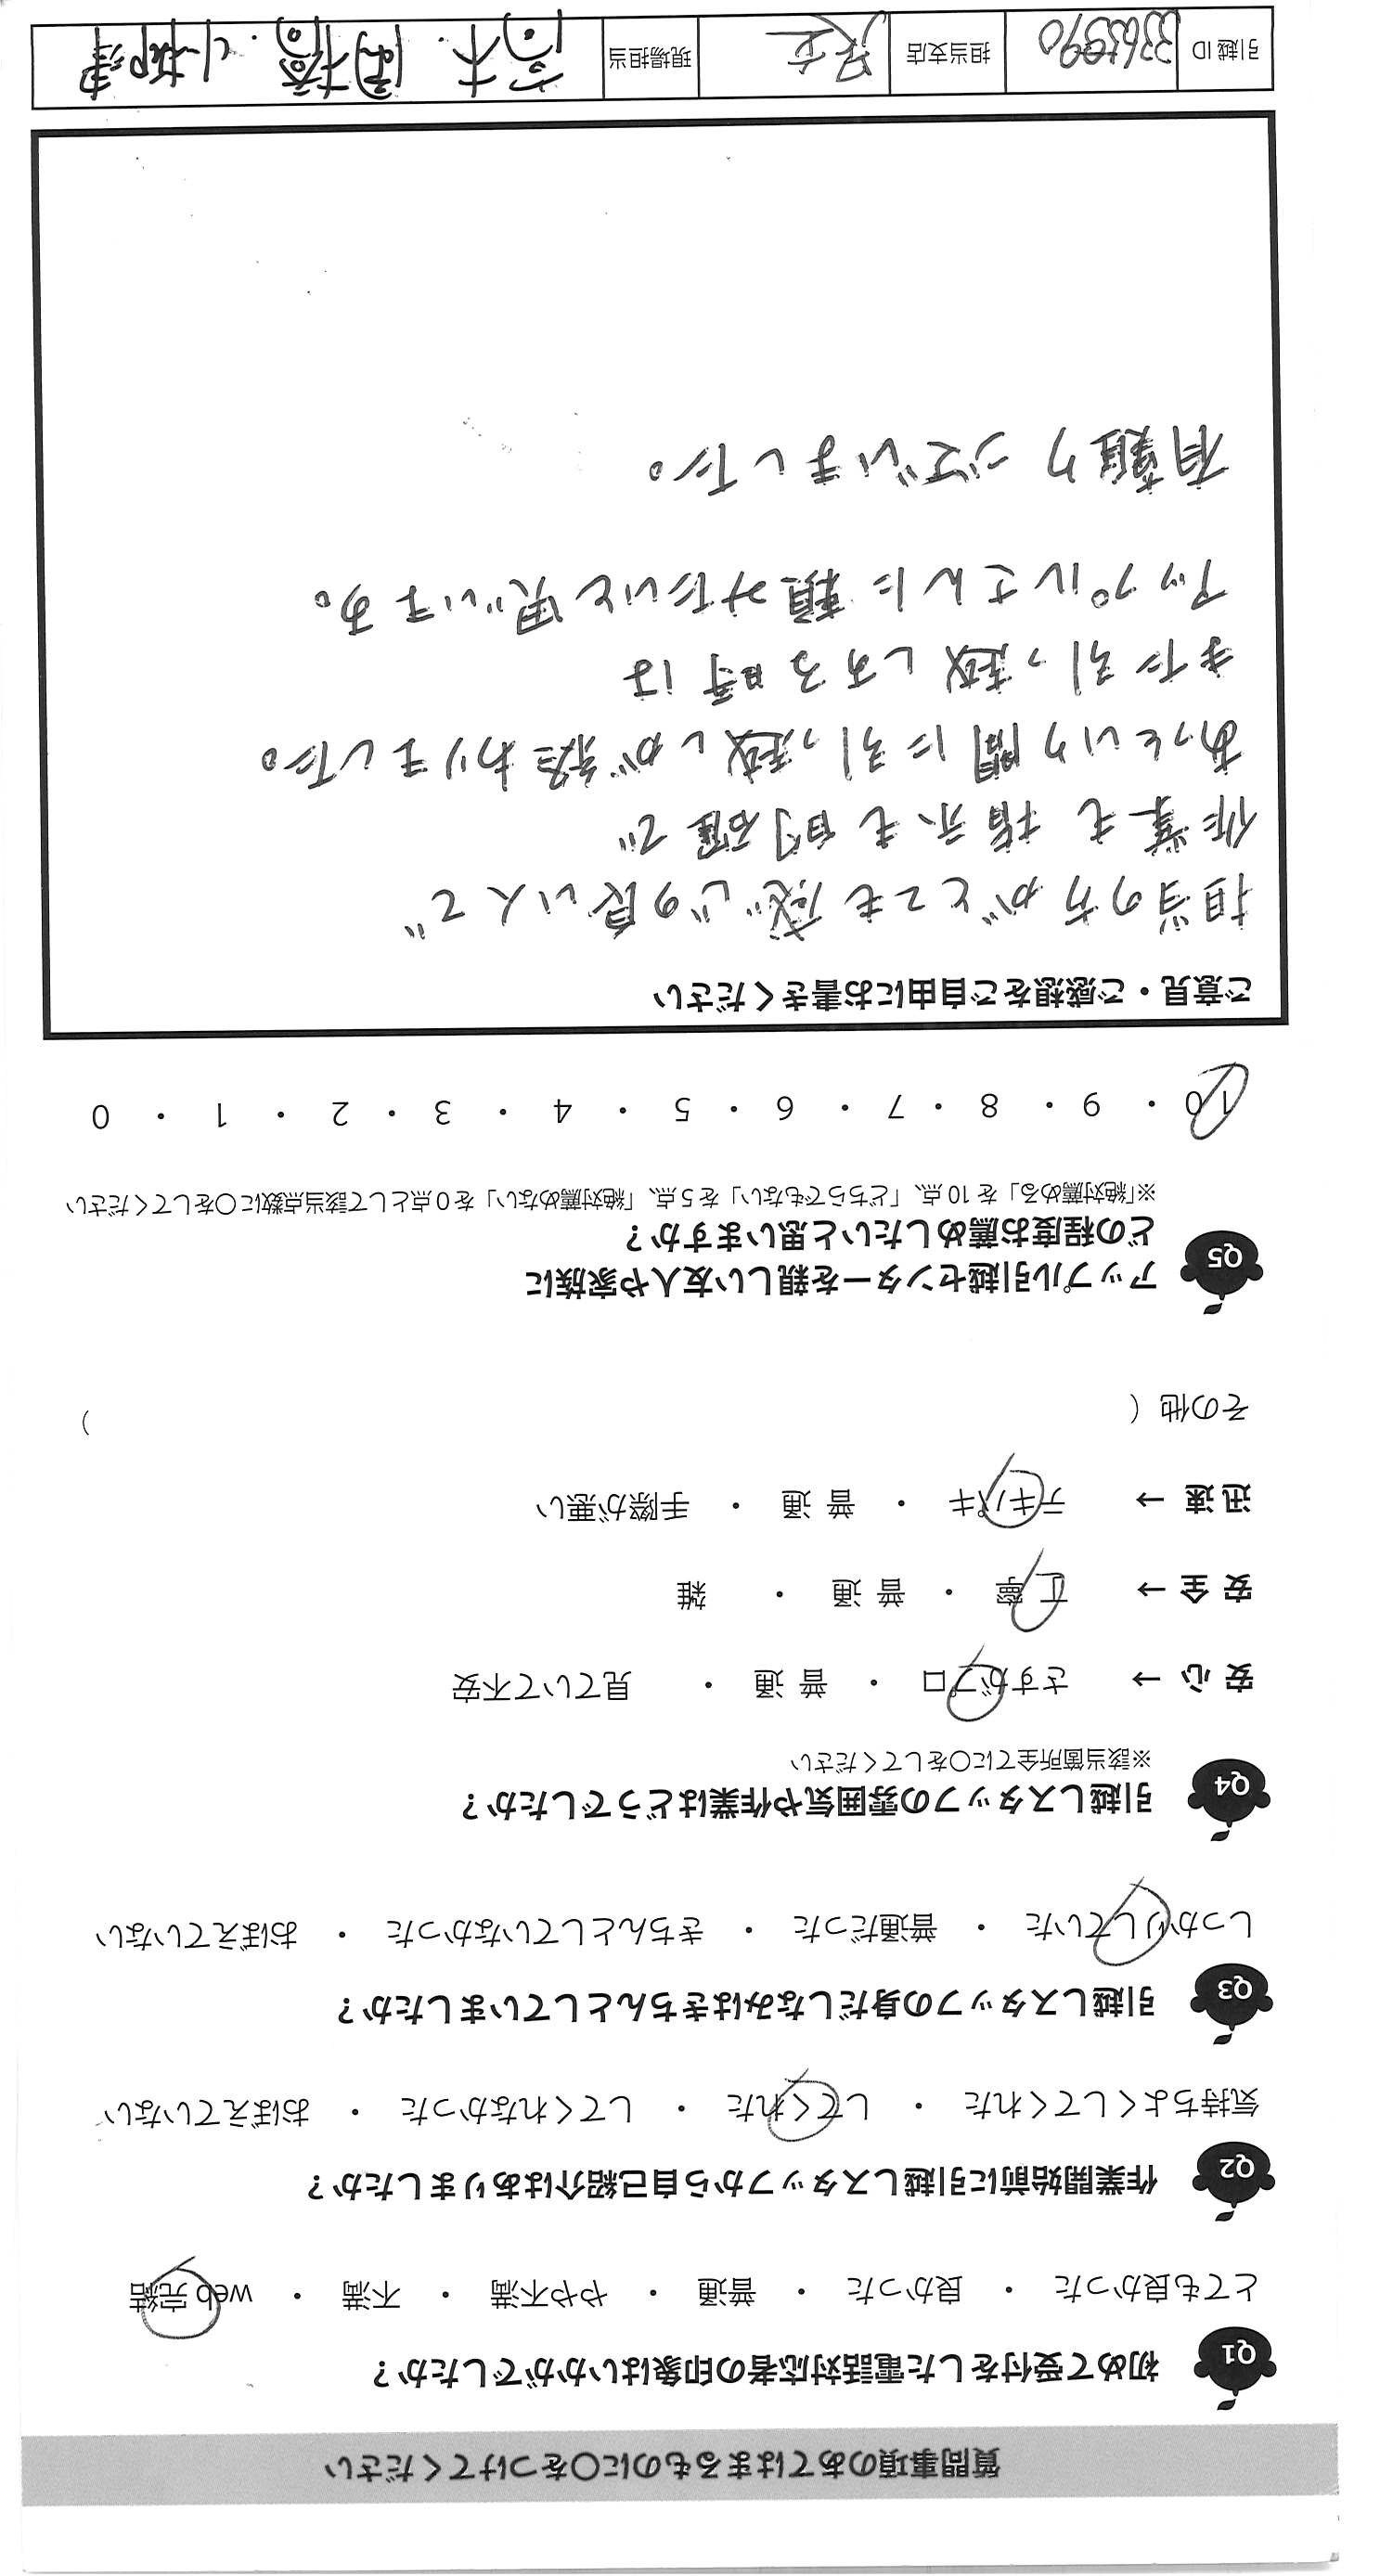 質問事項のあてはまるものに〇をつけてください
Q1 初めて受付をした電話対応者の印象はいかがでしたか?
とても良かった ・ 良かった ・ 普通 ・ やや不満 ・ 不満 ・ web 完結
Q2 作業開始前に引越しスタッフから自己紹介はありましたか?
気持ちよくしてくれた ・ してくれた ・ してくれなかった ・ おぼえていない
Q3 引越しスタッフの身だしなみはきちんとしていましたか?
しっかりしていた ・ 普通だった ・ きちんとしていなかった ・ おぼえていない
Q4 引越しスタッフの雰囲気や作業はどうでしたか?
※該当箇所全てに〇をしてください
安 心 → さすがプロ ・ 普 通 ・ 見ていて不安
安 全 → 丁 寧 ・ 普 通 ・ 雑
迅 速 → テキパキ ・ 普 通 ・ 手際が悪い
その他 ( )
Q5 アップル引越センターを親しい友人や家族に
どの程度お薦めしたいと思いますか?
※「絶対薦める」を 10 点、「どちらでもない」を 5 点、「絶対薦めない」を 0 点として該当点数に〇をしてください
10 ・ 9 ・ 8 ・ 7 ・ 6 ・ 5 ・ 4 ・ 3 ・ 2 ・ 1 ・ 0
ご意見・ご感想をご自由にお書きください
担当の方がとても感じの良い人で
作業も指示も的確で
あっという間に引っ越しが終わりました。
また引っ越しする時は
アップルさんに頼みたいと思います。
有難うございました。
引越 ID 担当支店 現場担当 高木.